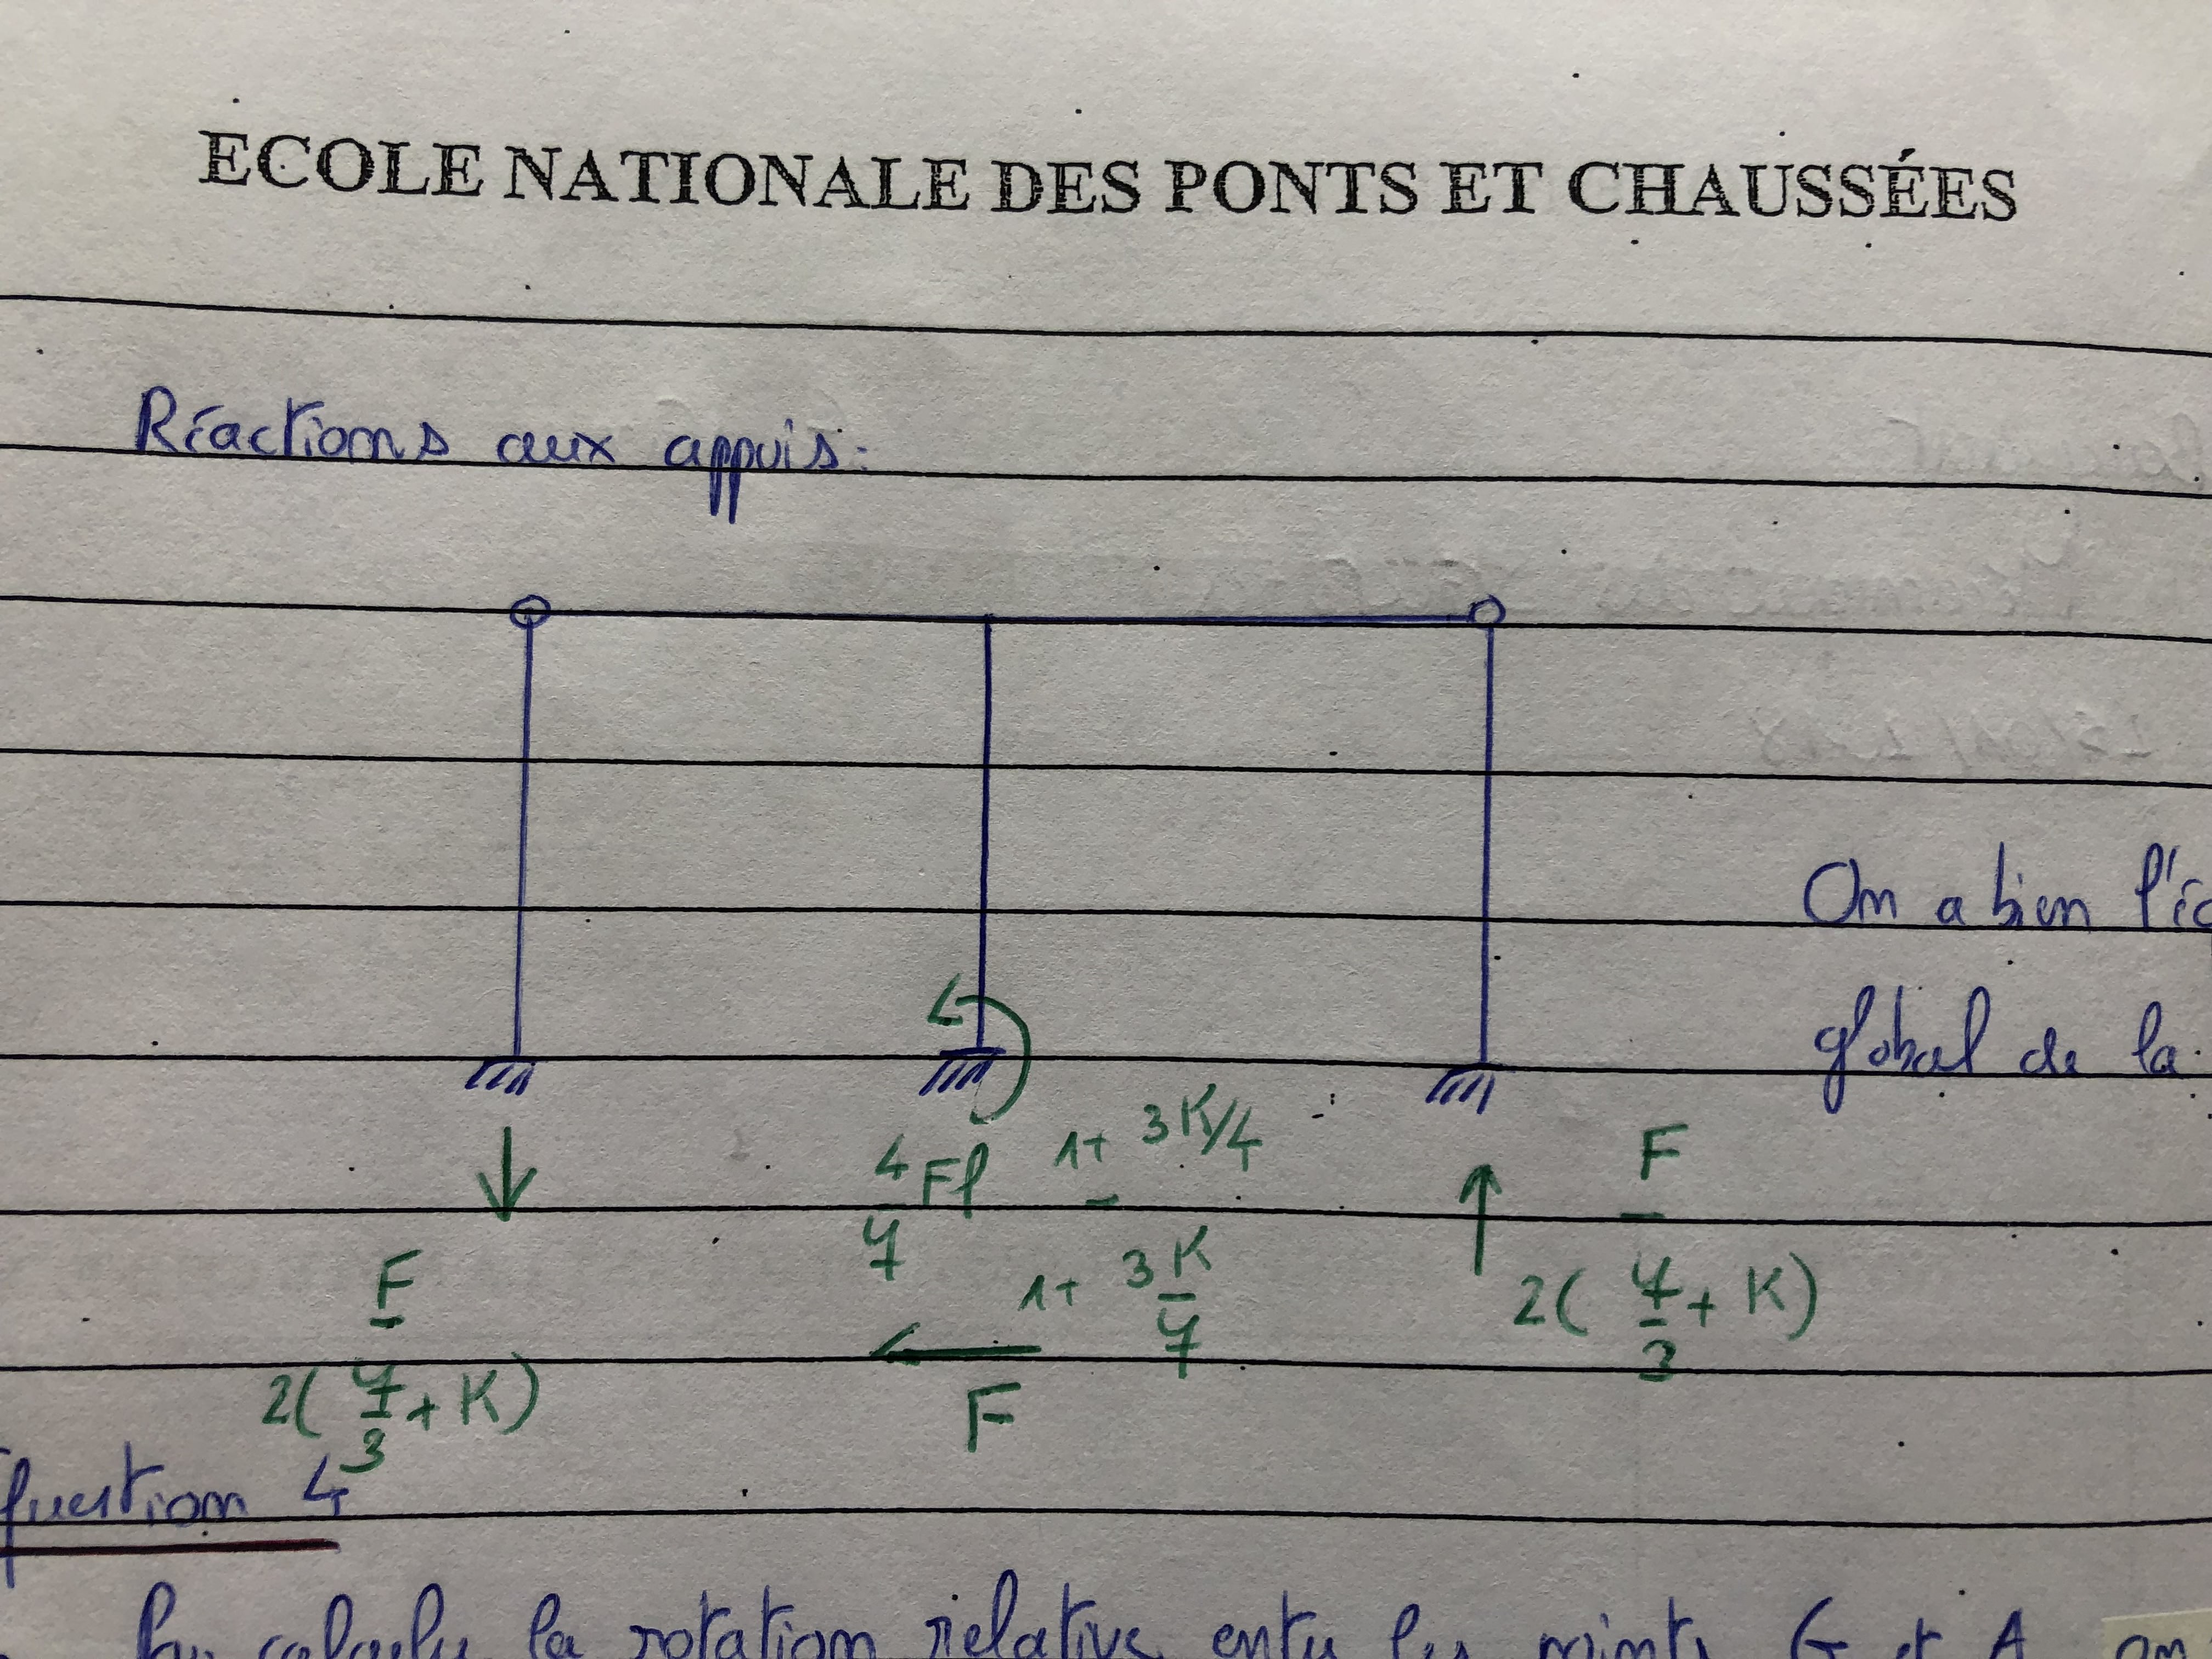 ECOLE NATIONALE DES PONTS ET CHAUSSÉES
Réactions aux appuis:
On a bien
global de la
F / 2(7/3 + K)
4/7 Fl (1+ 3K/4) / (1+ 3K/7)
F
F / 2(7/3 + K)
Question 4
la rotation relative entre les points G et A, on